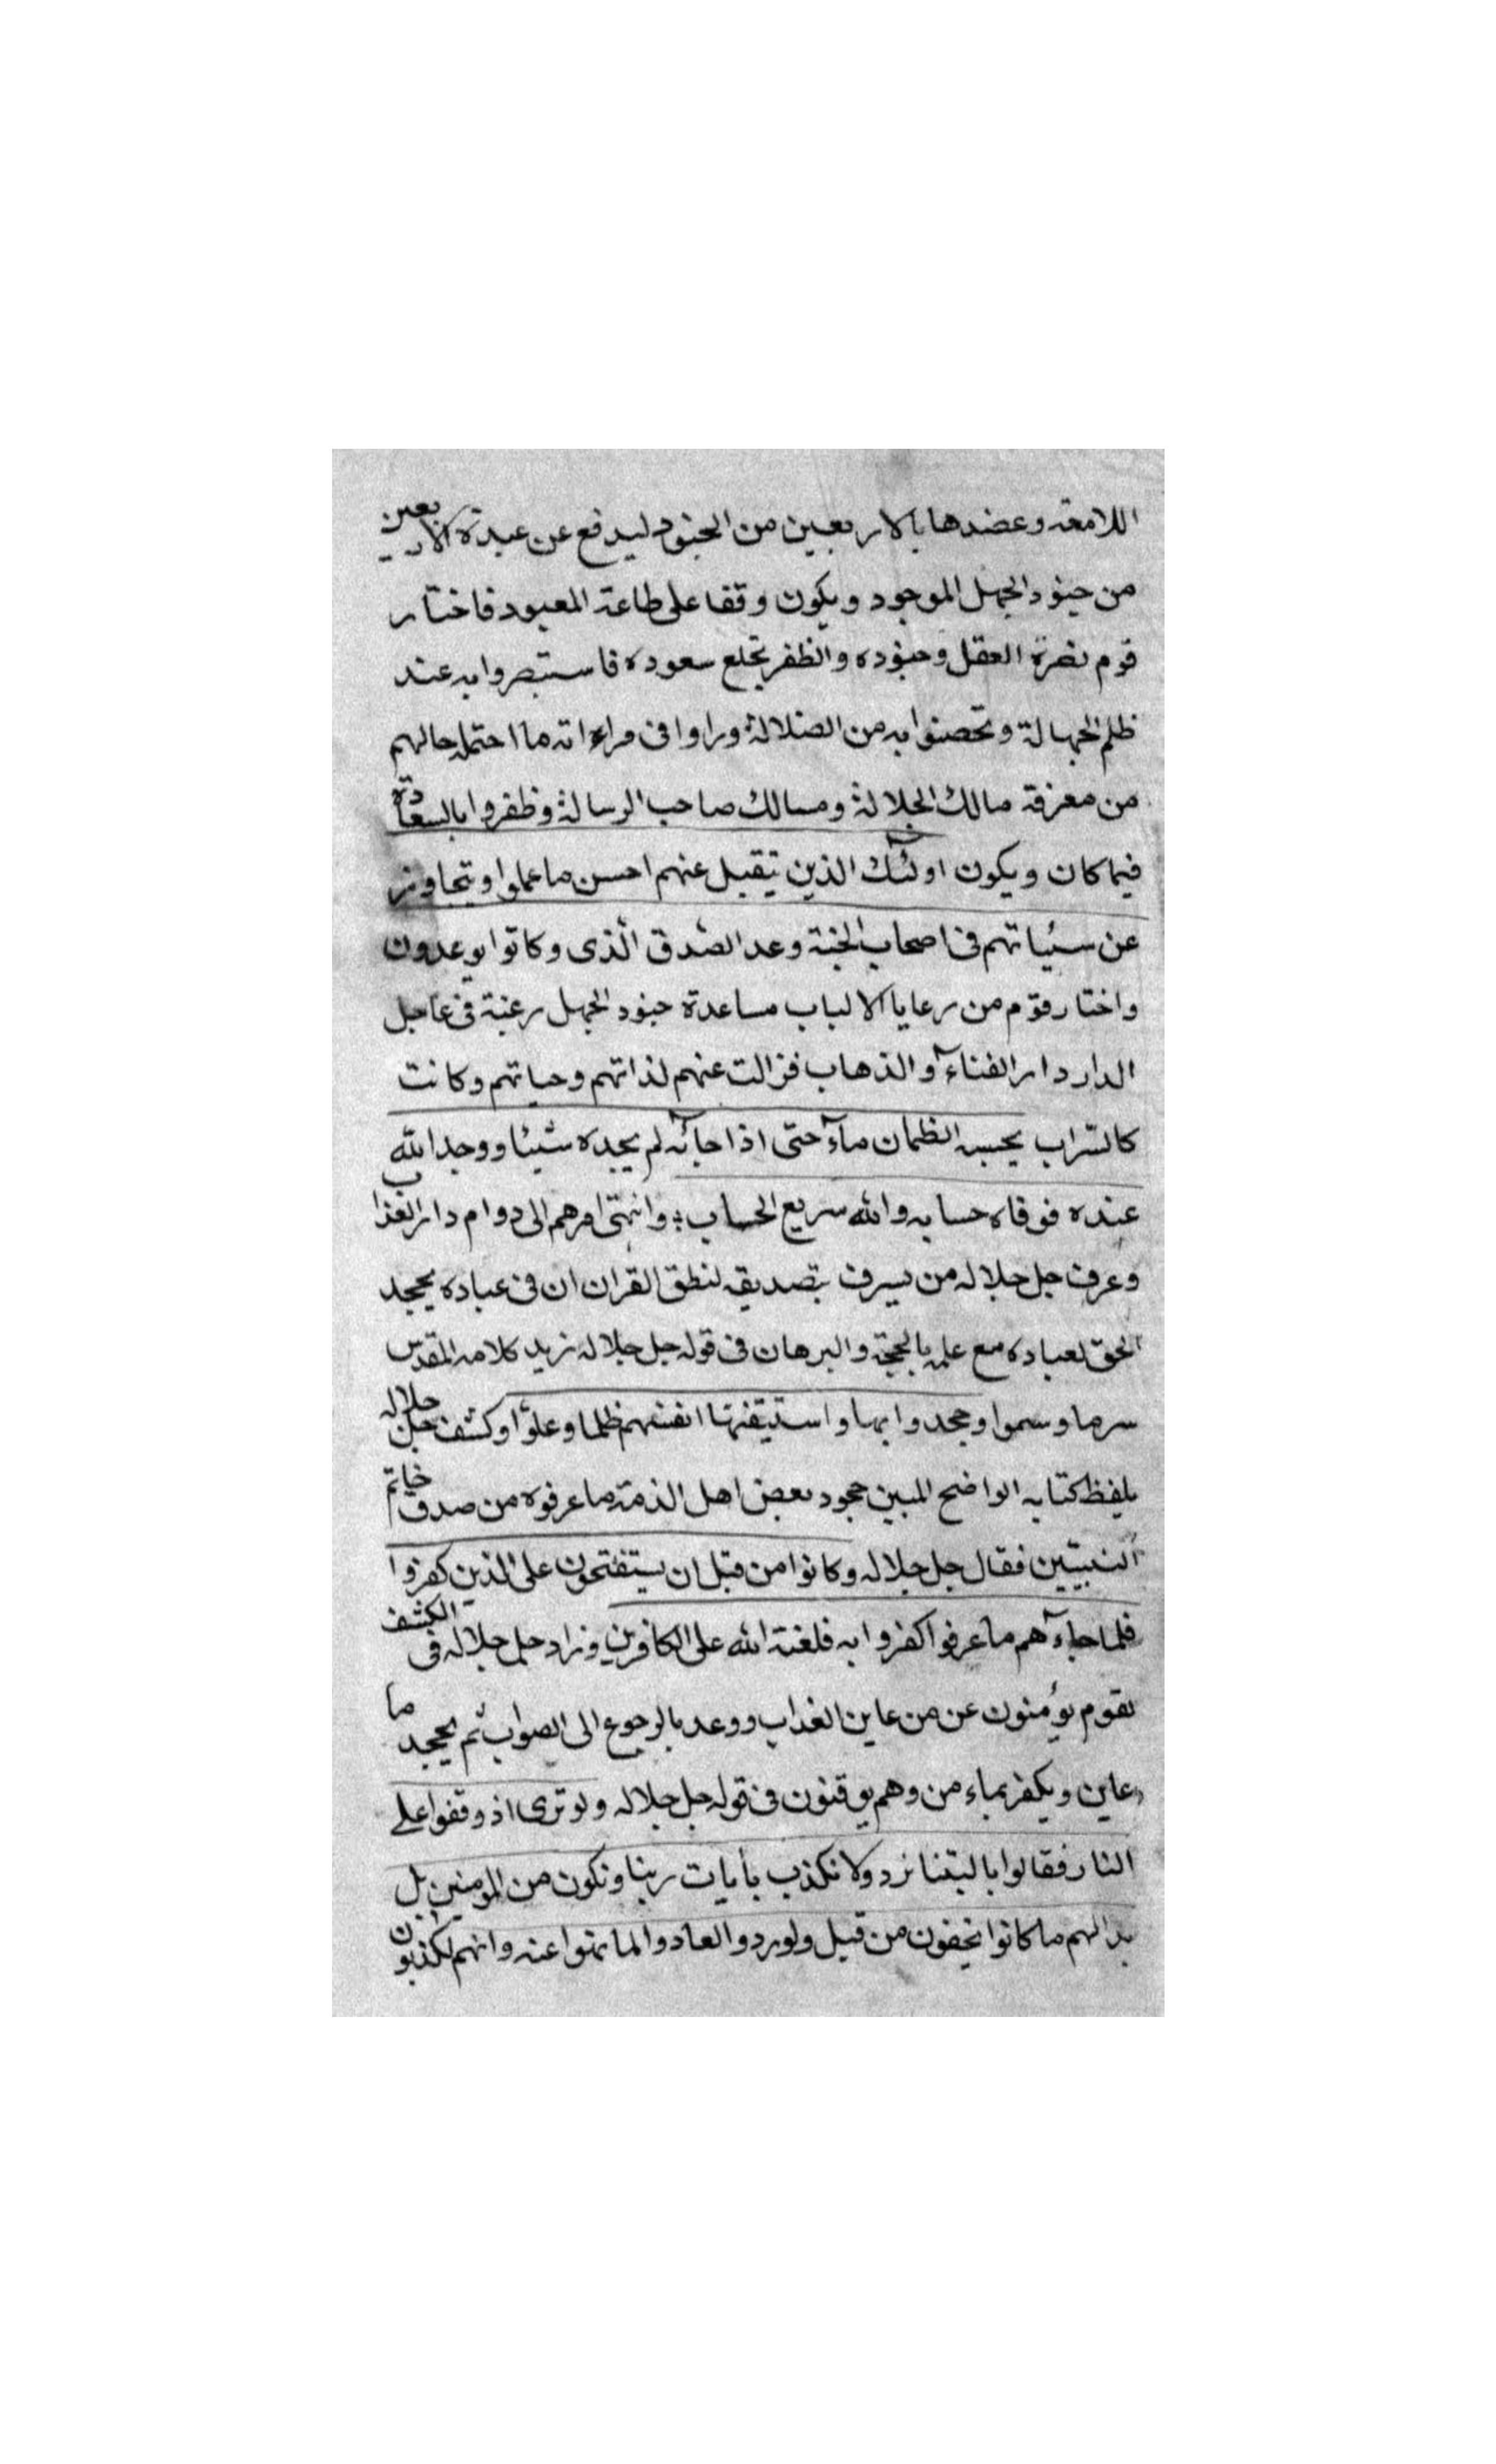 اللامعة وعضدها بالاربعين من الجنود ليدفع عن عبدة الاربعين
من جنود الجهل الموجود ويكون وقفا على طاعة المعبود فاختار
قوم نصرة العقل وجنوده والظفر بخلع سعوده فاستبصروا به عند
ظلم الجهالة وتحصنوا به من الضلالة وراوا فى مراءاته ما احتمله حالهم
من معرفة مالك الجلالة ومسالك صاحب الرسالة وظفروا بالسعادة
فيما كان ويكون اولئك الذين يتقبل عنهم احسن ما عملوا ويتجاوز
عن سيئاتهم فى اصحاب الجنة وعد الصّدق الّذى وكانوا يوعدون
واختار قوم من رعايا الالباب مساعدة جنود الجهل رغبة فى عاجل
الدار دار الفناء والذهاب فزالت عنهم لذاتهم وحياتهم وكانت
كالسّراب يحسبه الظمان ماء حتى اذا جائه لم يجده شيئا ووجد الله
عنده فوفاه حسابه والله سريع الحساب وانتهى امرهم الى دوام دار العذاب
وعرف جل جلاله من يسرف بتصديقه لنطق القران ان فى عباده يجحد
الحق لعباده مع علمه بالحجة والبرهان فى قوله جل جلاله نريد كلامه المقدس
سرها وسموا وجحدوا بها واستيقنتها انفسهم ظلما وعلوّا وكشف جل جلاله
بلفظ كتابه الواضح المبين جحود بعض اهل الذمة ما عرفوه من صدق خاتم
النبيّين فقال جل جلاله وكانوا من قبل ان يستفتحون على الذين كفروا
فلما جاءهم ما عرفوا كفروا به فلعنة الله على الكافرين وزاد جل جلاله فى الكشف
بقوم يؤمنون عن من عاين العذاب ووعد بالرجوع الى الصواب ثم يجحد ما
عاين ويكفر بماء من وهم يوقنون فى قوله جل جلاله ولو ترى اذ وقفوا على
النار فقالوا يا ليتنا نرد ولا نكذب بأيات ربنا ونكون من المومنين بل
بدا لهم ما كانوا يخفون من قبل ولو ردوا لعادوا لما نهوا عنه وانهم لكاذبون